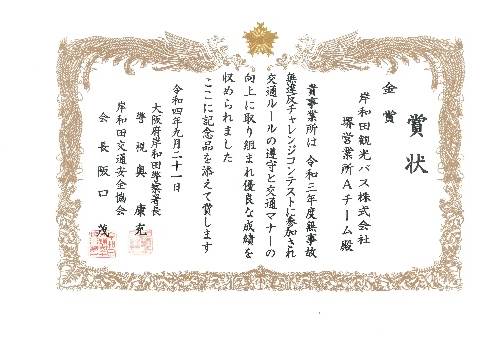 賞状
金賞
岸和田観光バス株式会社
堺営業所Aチーム殿
貴事業所は 令和三年度無事故
無違反チャレンジコンテストに参加され
交通ルールの遵守と交通マナーの
向上に取り組まれ優良な成績を
収められました
ここに記念品を添えて賞します
令和四年九月二十一日
大阪府岸和田警察署長
警視 奥 康光
岸和田交通安全協会
会長 阪口 茂